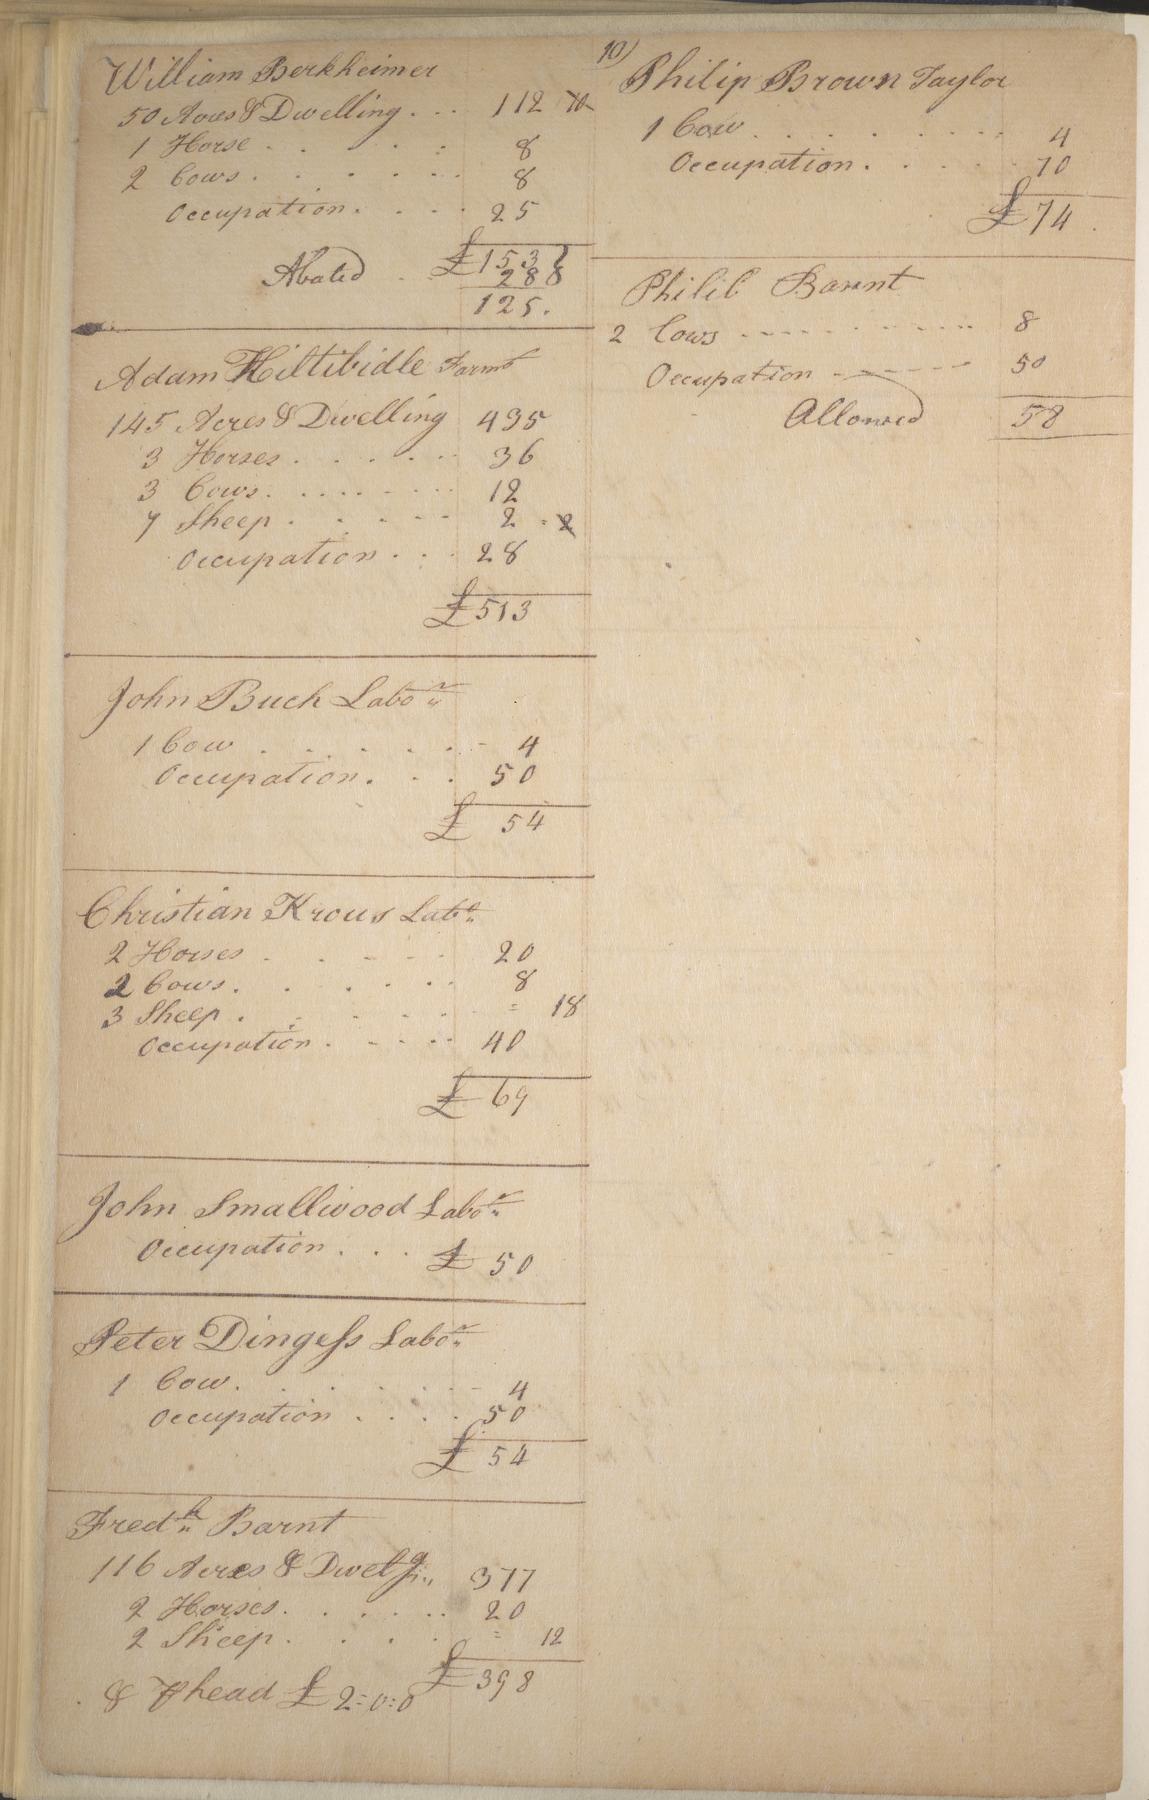 William Berkheimer
50 Acres & Dwelling . . . 112 10
1 Horse . . . . 8
2 Cows . . . . . . 8
Occupation . . . . 25
£153
Abated . 28 8
125.
Adam Hiltibidle Farmr
145 Acres & Dwelling 435
3 Horses . . . . . 36
3 Cows . . . . . . 12
7 Sheep . . . . . 2 . 2
Occupation . . . 28
£513
John Buch Labor
1 Cow . . . . . . 4
Occupation . . . 50
£ 54
Christian Krous Labr
2 Horses . . . . . 20
2 Cows . . . . . . 8
3 Sheep . . . . . = 18
Occupation . . . . 40
£ 69
John Smallwood Labor
Occupation . . . £ 50
Peter Dingess Labor
1 Cow . . . . . . 4
Occupation . . . . 50
£ 54
Fredk Barnt
116 Acres & Dwelg 377
2 Horses . . . . . . 20
2 Sheep . . . . = 12
£ 398
& P head £ 2=0=0
10)
Philip Brown Taylor
1 Cow . . . . . . . . 4
Occupation . . . . 70
£ 74.
Philib Barnt
2 Cows - - - - - - - - 8
Occupation - - - - - 50
Allowed 58